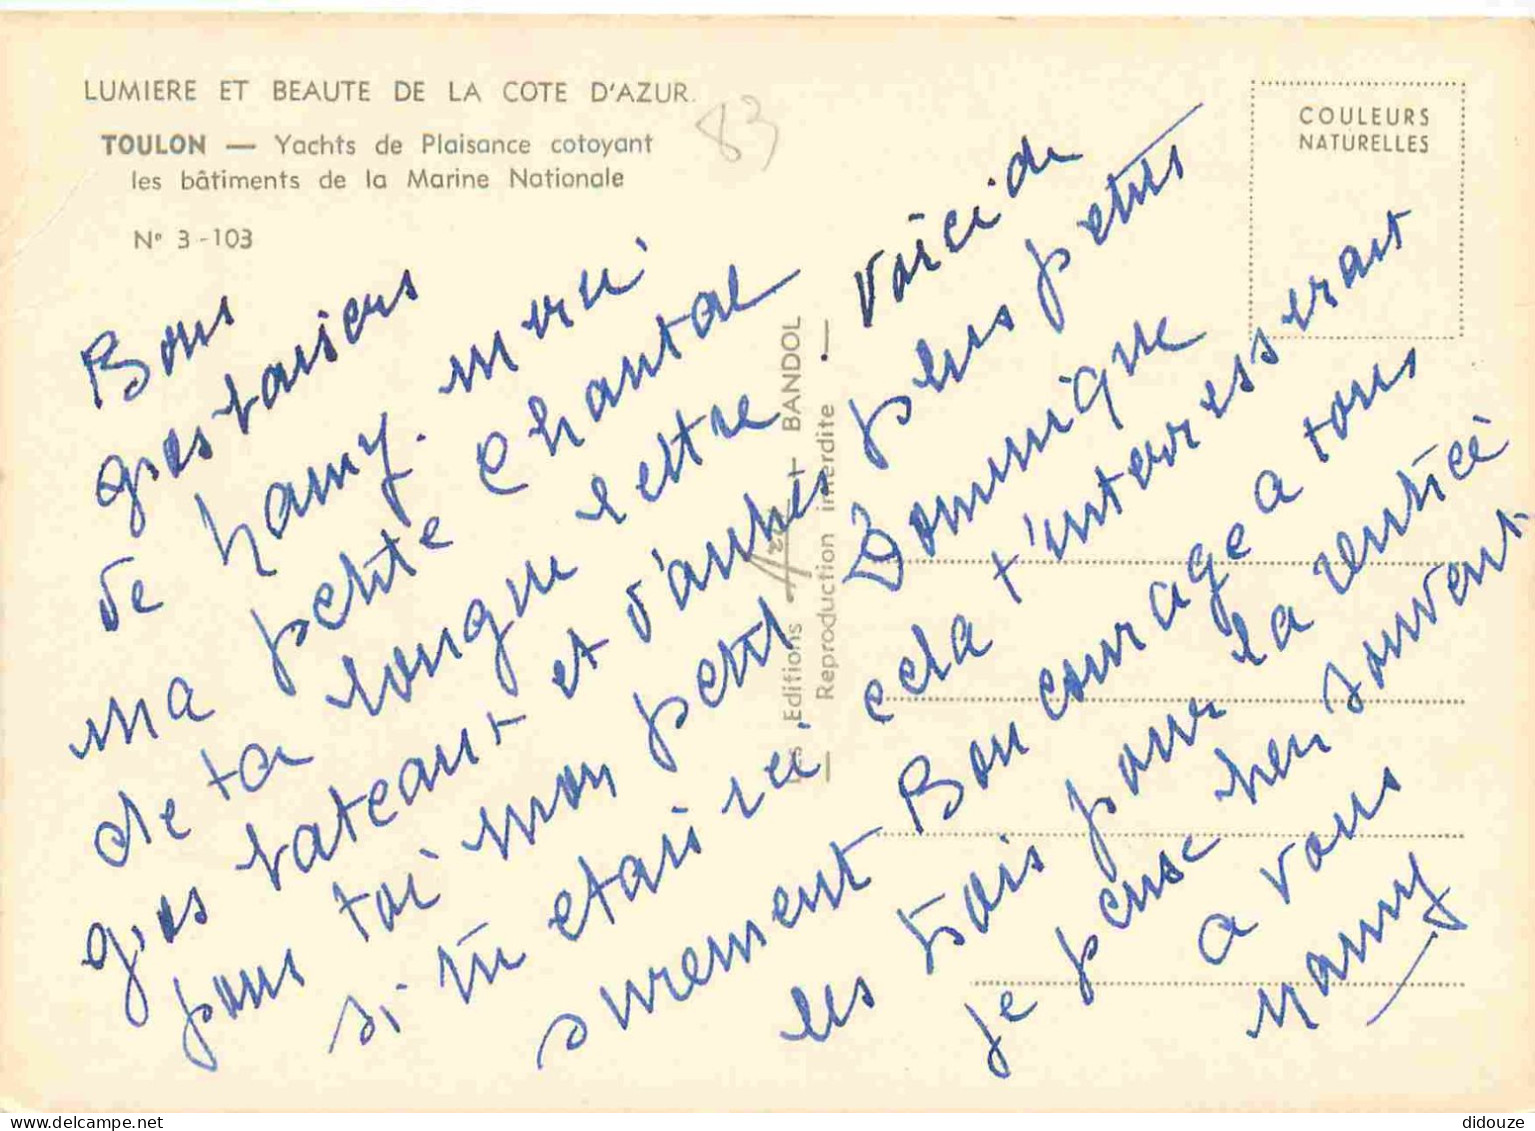 LUMIERE ET BEAUTE DE LA COTE D'AZUR.
TOULON — Yachts de Plaisance cotoyant
les bâtiments de la Marine Nationale
N° 3-103
83
COULEURS
NATURELLES
Les Editions Arc — BANDOL
— Reproduction interdite —
Bons
gros baisers
de mamy. merci
ma petite Chantal
de ta longue lettre. voici de
gros bateaux et d'autres plus petits
pour toi mon petit Dominique
si tu etais ici cela t'interesserait
surement Bon courage a tous
les trois pour la rentrée
je pense bien souvent
a vous
Mamy
didouze